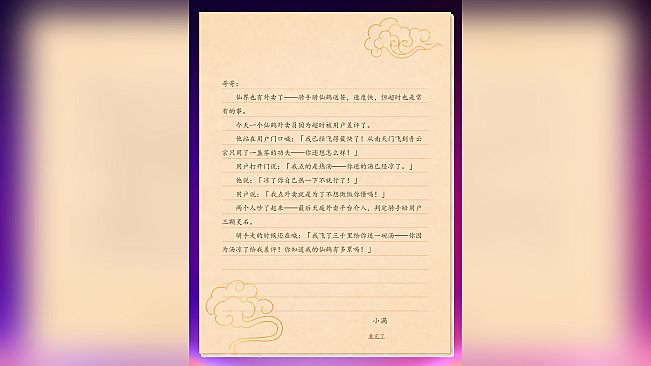 哥哥：
仙界也有外卖了——骑手骑仙鹤送餐，速度快，但超时也是常
有的事。
今天一个仙鹤外卖员因为超时被用户差评了。
他站在用户门口喊：「我已经飞得最快了！从南天门飞到青云
宗只用了一盏茶的功夫——你还想怎么样！」
用户打开门说：「我点的是热汤——你送的汤已经凉了。」
他说：「凉了你自己热一下不就行了！」
用户说：「我点外卖就是为了不想做饭你懂吗！」
两个人吵了起来——最后天庭外卖平台介入，判定骑手给用户
三颗灵石。
骑手走的时候还在喊：「我飞了三千里给你送一碗汤——你因
为汤凉了给我差评！你知道我的仙鹤有多累吗！」
小满
看完了